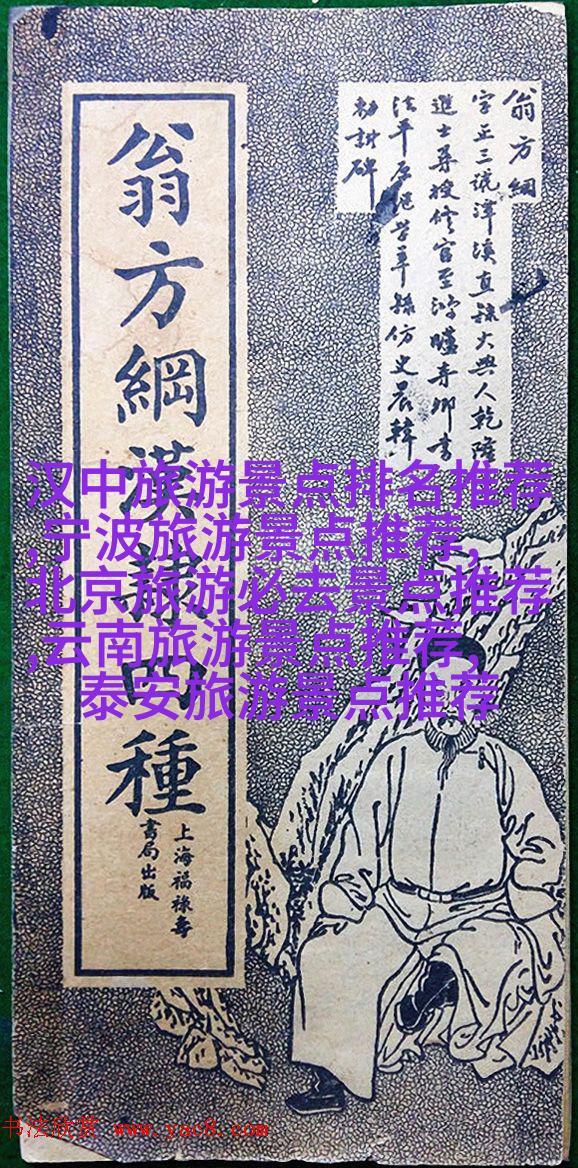 翁方綱
字正三號潭溪直隸大興人乾隆
進士
法平原
勅封碑
翁方綱漢隸四種
上海福祿壽
書局出版
汉中旅游景点排名推荐
,宁波旅游景点推荐,
北京旅游必去景点推荐
,云南旅游景点推荐,
泰安旅游景点推荐
书法欣赏 www.yac8.com